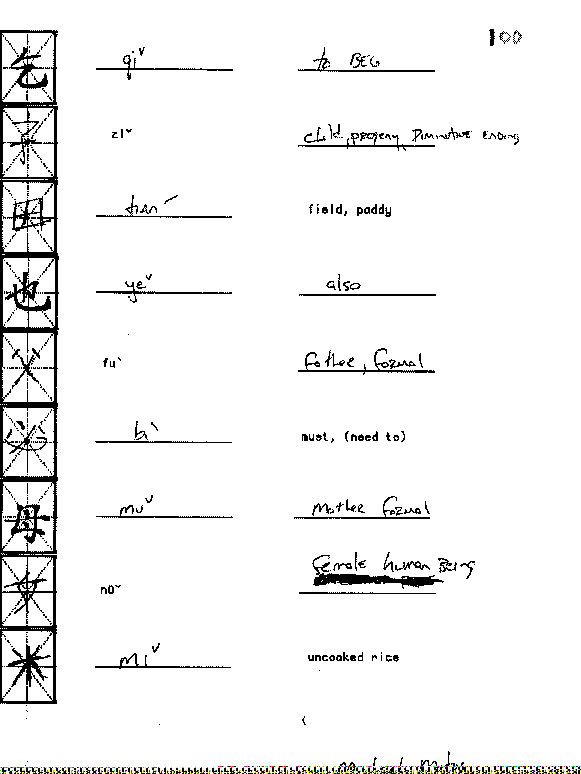 100
乞 qiˇ to BEG
子 ziˇ child, progeny, Diminutive Ending
田 tianˊ field, paddy
也 yeˇ also
父 fuˋ Father, Formal
必 biˋ must, (need to)
母 muˇ Mother Formal
女 nüˇ female human Being
米 miˇ uncooked rice